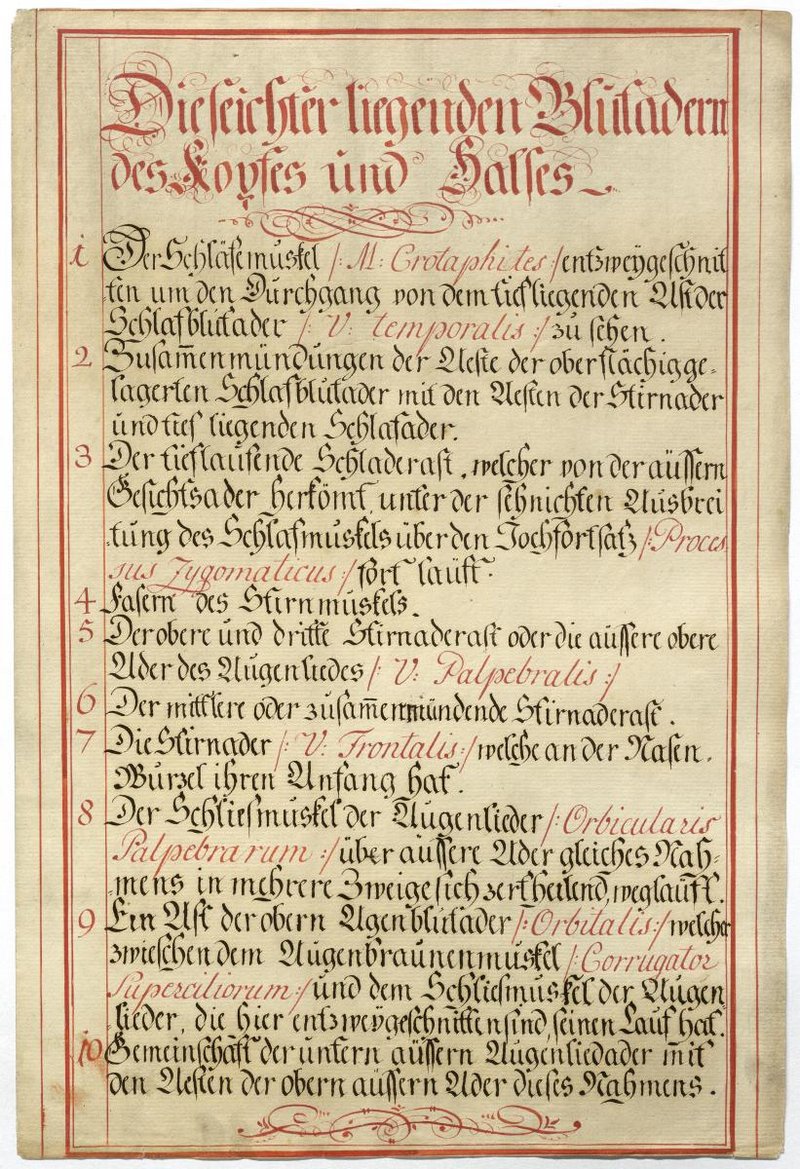 Die seichter liegenden Blutadern
des Kopfes und Halses.
1 Der Schläfemuskel /: M: Crotaphites :/ entzweygeschnit
ten um den Durchgang von dem tiefliegenden Ast der
Schlafblutader /: V: temporalis :/ zu sehen.
2 Zusam̄enmündungen der Aeste der oberflächig ge-
lagerten Schlafblutader mit den Aesten der Stirnader
und tief liegenden Schlafader.
3 Der tieflaufende Schladerast, welcher von der äussern
Gesichtsader herköm̄t, unter der sehnichten Ausbrei
tung des Schlafmuskels über den Jochfortsatz /: Proces
sus Zygomaticus :/ fort lauft.
4 Fasern des Stirnmuskels.
5 Der obere und dritte Stirnaderast oder die äussere obere
Ader des Augenliedes /: V: Palpebralis :/
6 Der mittlere oder zusam̄enmündende Stirnaderast.
7 Die Stirnader /: V: Frontalis :/ welche an der Nasen.
Wurzel ihren Anfang hat.
8 Der Schliesmuskel der Augenlieder /: Orbicularis
Palpebrarum :/ über äussere Ader gleiches Nah-
mens in mehrere Zweige sich zertheilend, weglauft.
9 Ein Ast der obern Agenblutader /: Orbitalis :/ welcher
zwieschen dem Augenbraunenmuskel /: Corrugator
Superciliorum :/ und dem Schliesmuskel der Augen
lieder, die hier entzweygeschnitten sind, seinen Lauf hat.
10 Gemeinschaft der untern äussern Augenliedader mit
den Aesten der obern äussern Ader dieses Nahmens.